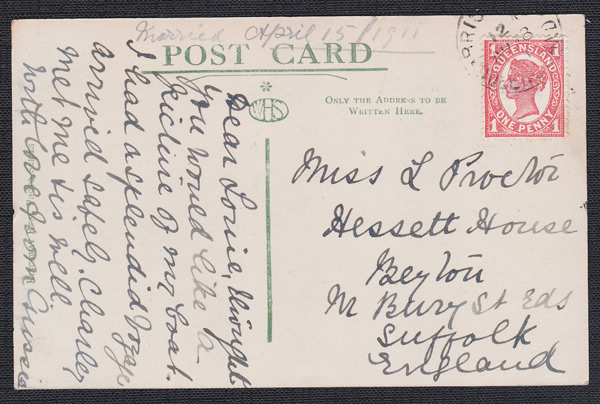 Married April 15/1911
POST CARD
WHS
ONLY THE ADDRESS TO BE
WRITTEN HERE.
QUEENSLAND
ONE PENNY
1 1
Dear Louie, thought
you would like a
picture of my boat.
I had a splendid voyage
arrived safely. Charley
met me & is well.
With love from
Miss L Proctor
Hessett House
Beyton
Nr Bury St Eds
Suffolk
England